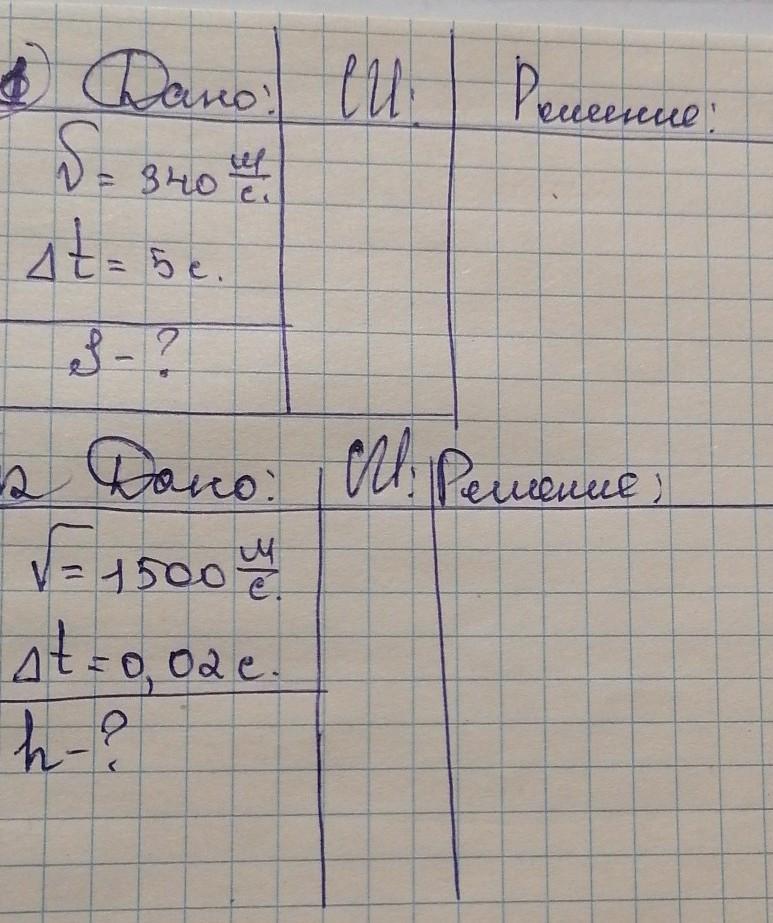 1) Дано: СИ: Решение:
v = 340 м/с.
Δt = 5 с.
S - ?
2 Дано: СИ: Решение:
v = 1500 м/с.
Δt = 0,02 с.
h - ?